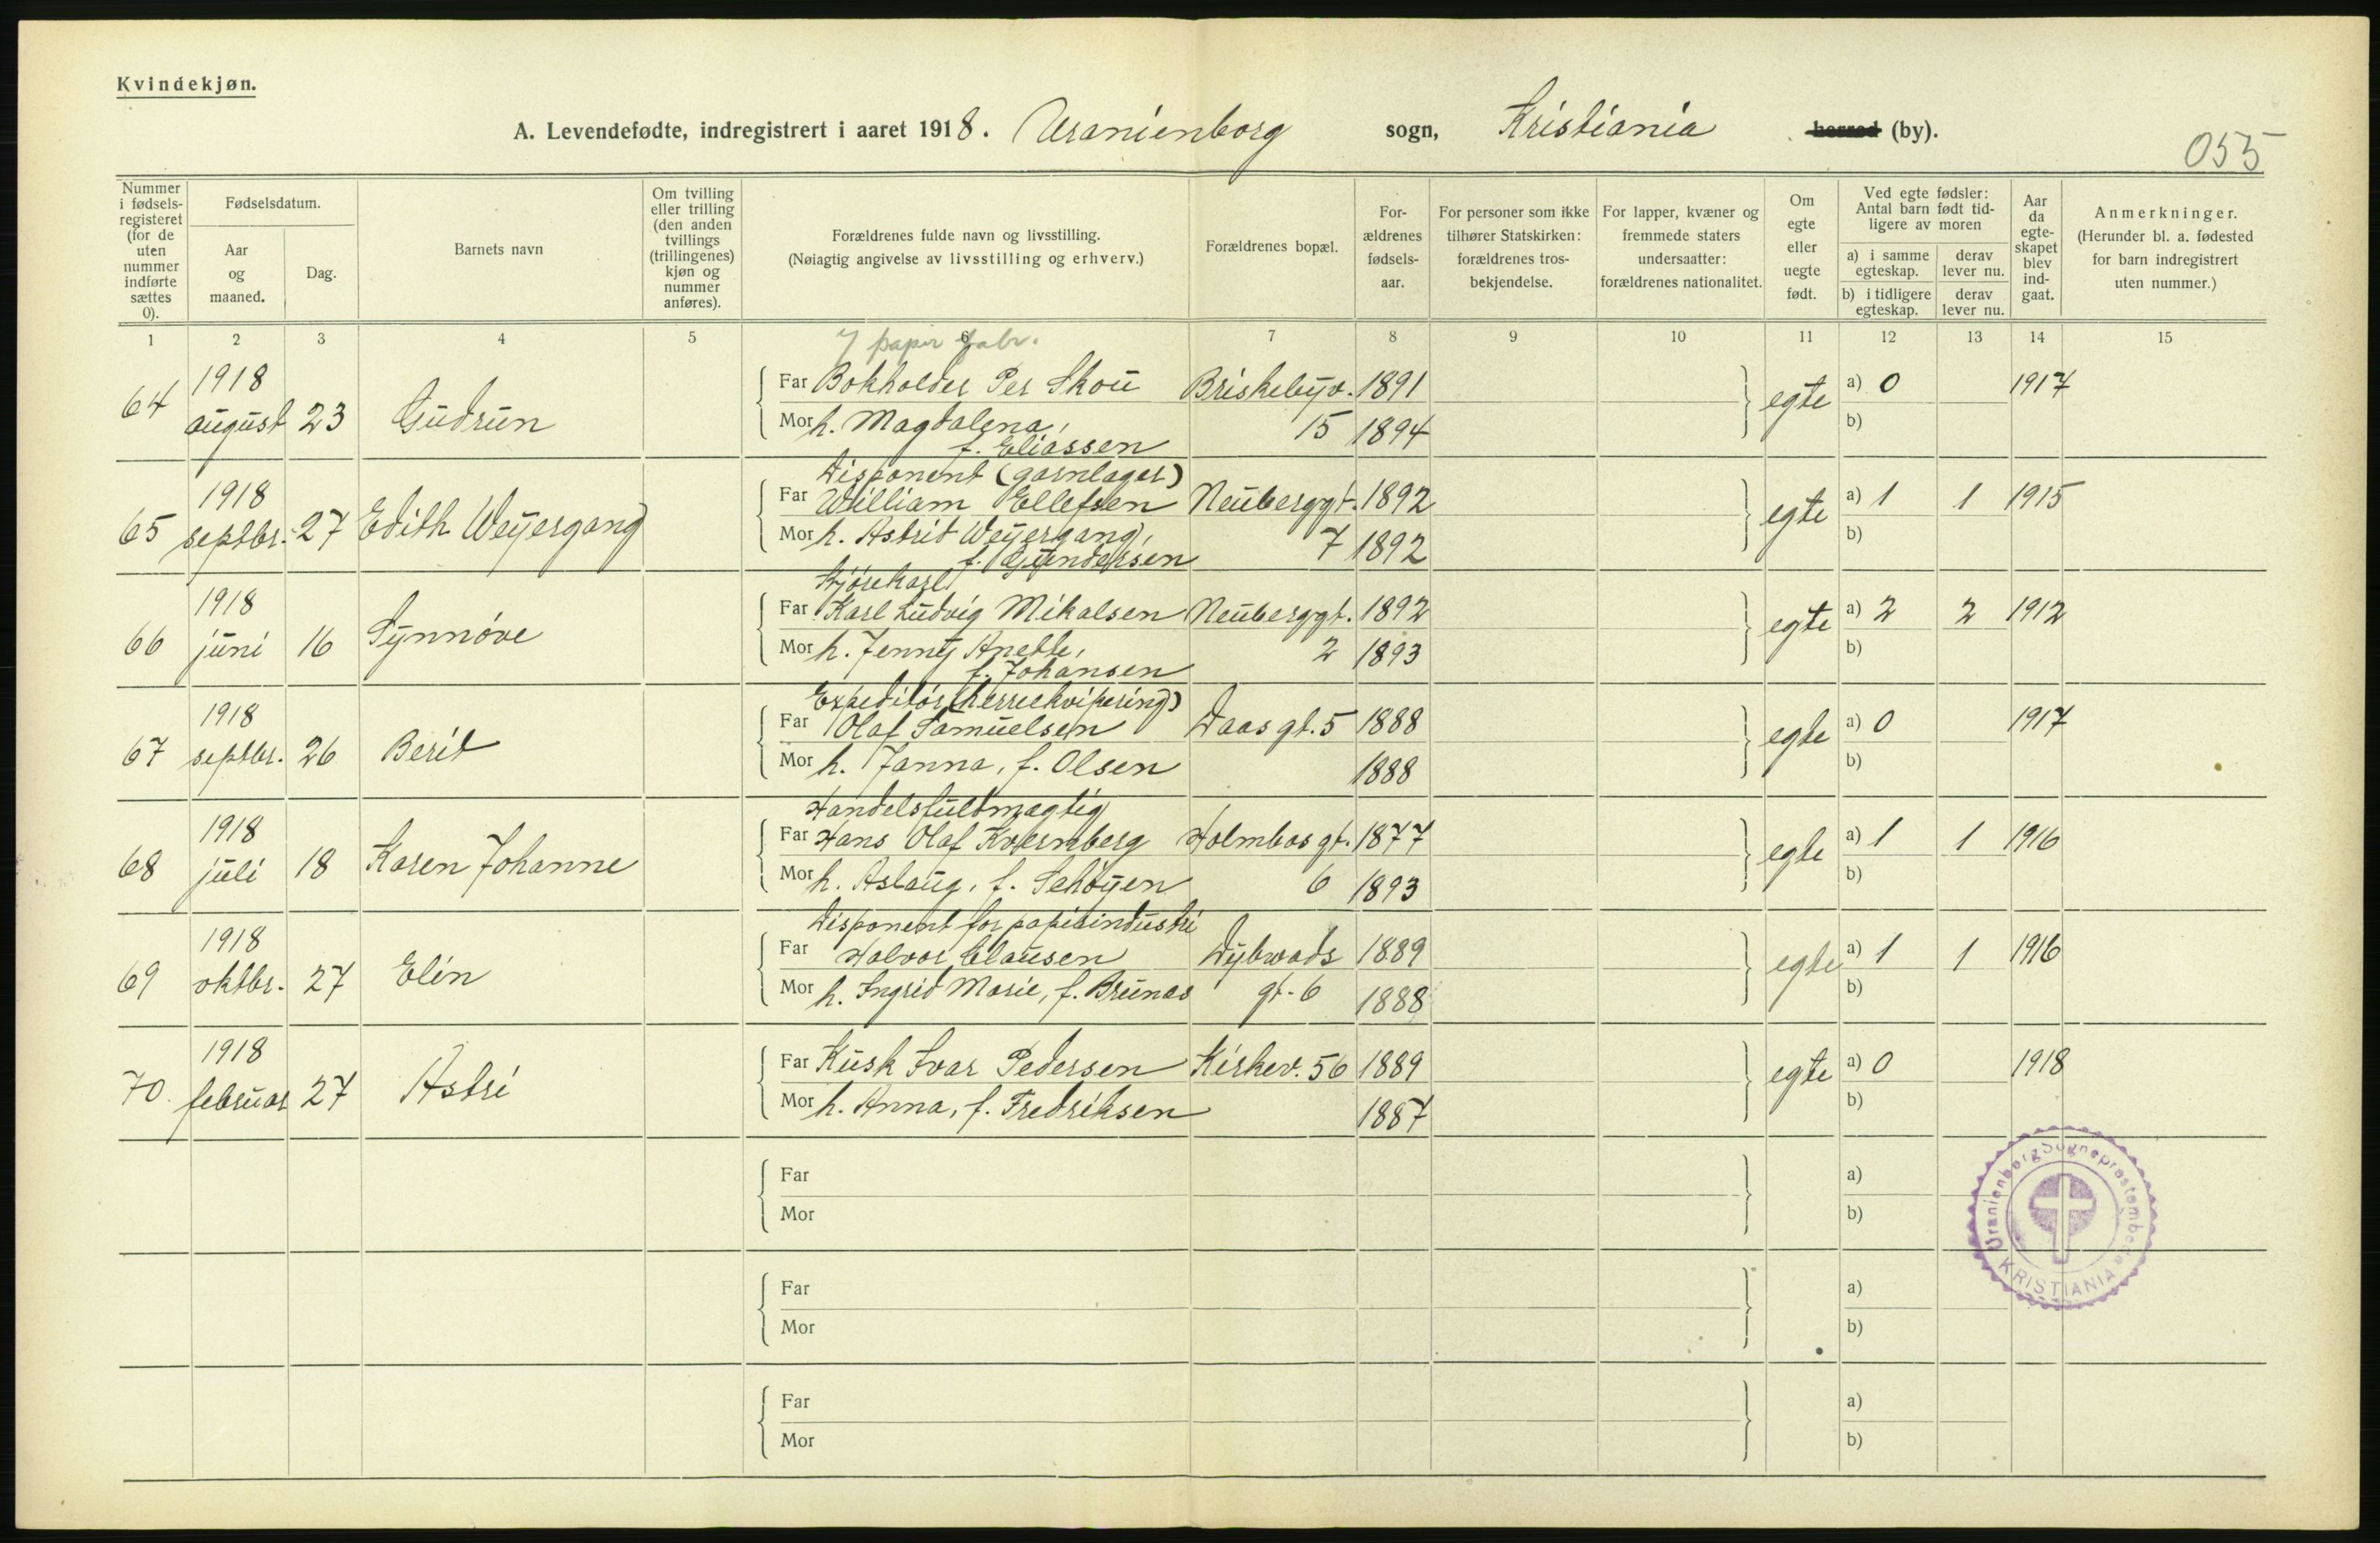 Kvindekjøn.
A. Levendefødte, indregistrert i aaret 1918. Uranienborg sogn, Kristiania herred (by).
055
Nummer i fødsels-registeret (for de uten nummer indførte sættes 0).
Fødselsdatum.
Aar og maaned.
Dag.
Barnets navn
Om tvilling eller trilling (den anden tvillings (trillingenes) kjøn og nummer anføres).
Forældrenes fulde navn og livsstilling.
(Nøiagtig angivelse av livsstilling og erhverv.)
Forældrenes bopæl.
For-ældrenes fødsels-aar.
For personer som ikke tilhører Statskirken: forældrenes tros-bekjendelse.
For lapper, kvæner og fremmede staters undersaatter: forældrenes nationalitet.
Om egte eller uegte født.
Ved egte fødsler: Antal barn født tid-ligere av moren
a) i samme egteskap.
derav lever nu.
b) i tidligere egteskap.
derav lever nu.
Aar da egte-skapet blev ind-gaat.
Anmerkninger.
(Herunder bl. a. fødested for barn indregistrert uten nummer.)
1 2 3 4 5 6 7 8 9 10 11 12 13 14 15
papir fabr.
1918
Far Bokholder Per Skou Briskebyv. 1891 a) 0 1917
64 august 23 Gudrun egte
Mor h. Magdalena, 15 1894 b)
f. Eliassen
Disponent (garnlager)
1918
Far William Ellefsen Neuberggt. 1892 a) 1 1 1915
65 septbr. 27 Edith Weyergang egte
Mor h. Astrid Weyergang, 7 1892 b)
f. Gundersen
Kjørekarl
1918
Far Karl Ludvig Mikalsen Neuberggt. 1892 a) 2 2 1912
66 juni 16 Synnøve egte
Mor h. Jenny Anette, 2 1893 b)
f. Johansen
Expeditør (herreekvipering)
1918
Far Olaf Samuelsen Daas gt. 5 1888 a) 0 1917
67 septbr. 26 Berit egte
Mor h. Janna, f. Olsen 1888 b)
Handelsfuldmægtig
1918
Far Hans Olaf Kvernberg Holmbos gt. 1877 a) 1 1 1916
68 juli 18 Karen Johanne egte
Mor h. Aslaug, f. Schøyen 6 1893 b)
Disponent for papirindustri
1918
Far Halvor Clausen Dybwads 1889 a) 1 1 1916
69 oktbr. 27 Elin egte
Mor h. Ingrid Marie, f. Brunæs gt. 6 1888 b)
1918
Far Kusk Ivar Pedersen Kirkev. 56 1889 a) 0 1918
70. februar 27 Astri egte
Mor h. Anna, f. Fredriksen 1887 b)
Far a)
Mor b)
Far a)
Mor b)
Far a)
Mor b)
Uranienborg Sogneprestembede
KRISTIANIA